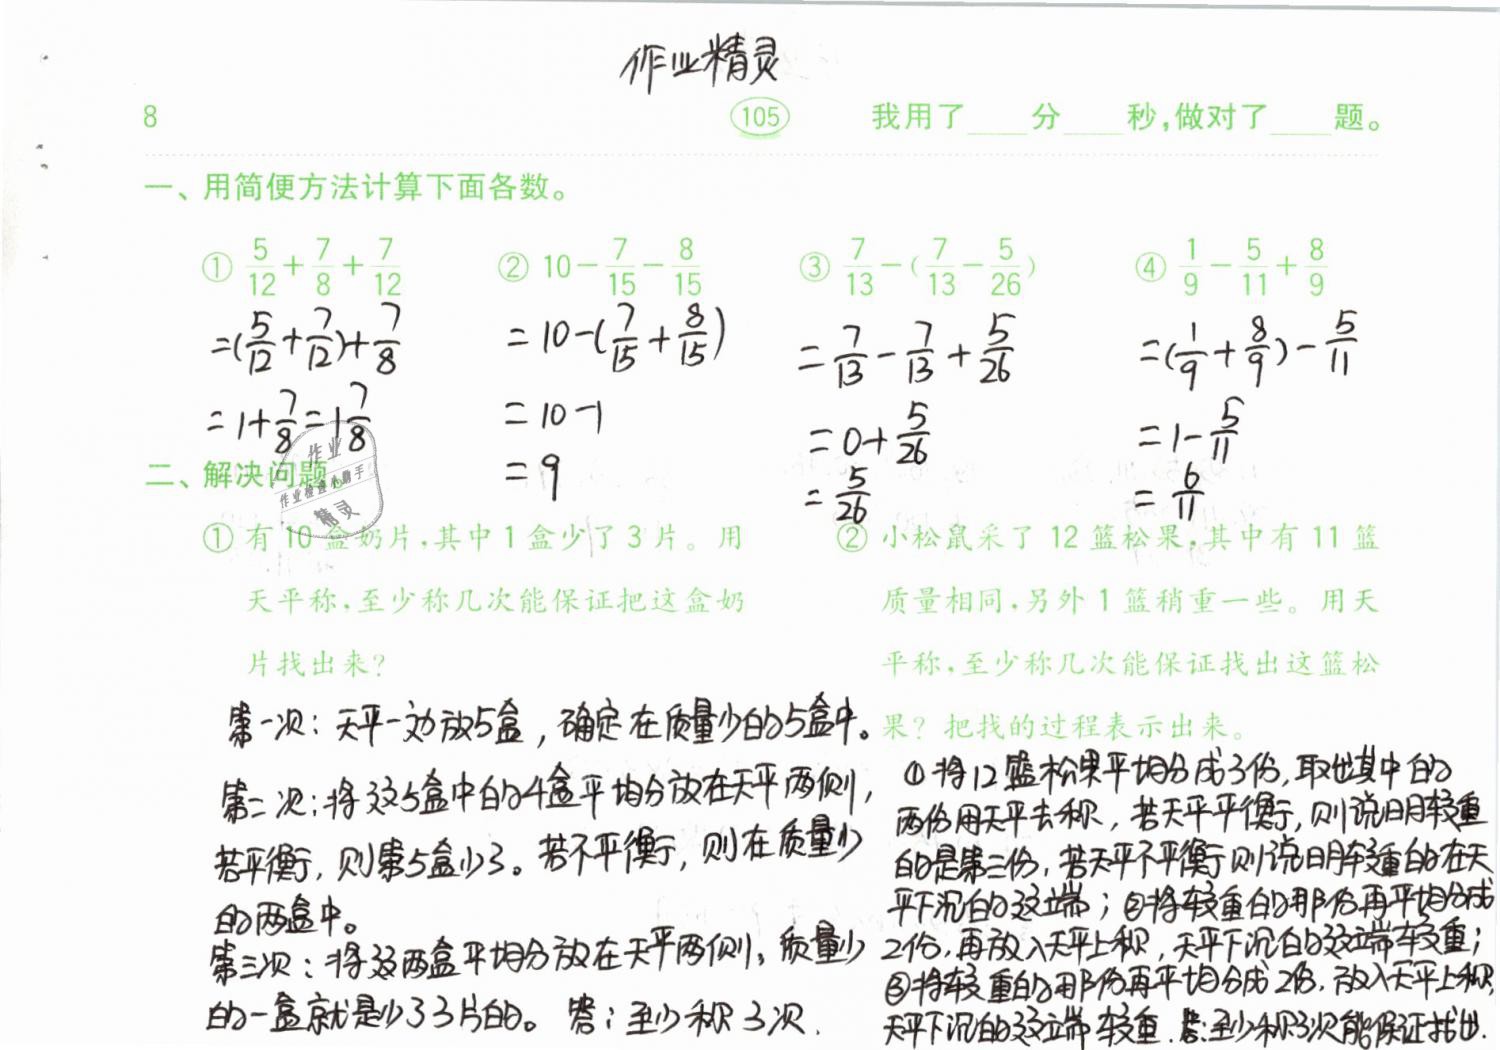 作业精灵
8 105 我用了____分____秒,做对了____题。
一、用简便方法计算下面各数。
① 5/12+7/8+7/12 ② 10-7/15-8/15 ③ 7/13-(7/13-5/26) ④ 1/9-5/11+8/9
=(5/12+7/12)+7/8 =10-(7/15+8/15) =7/13-7/13+5/26 =(1/9+8/9)-5/11
=1+7/8=1 7/8 =10-1 =0+5/26 =1-5/11
=9 =5/26 =6/11
二、解决问题。
作业
作业检查小助手
精灵
① 有 10 盒奶片,其中 1 盒少了 3 片。用
天平称,至少称几次能保证把这盒奶
片找出来?
第一次:天平一边放5盒,确定在质量少的5盒中。
第二次:将这5盒中的4盒平均分放在天平两侧,
若平衡,则第5盒少3。若不平衡,则在质量少
的两盒中。
第三次:将这两盒平均分放在天平两侧,质量少
的一盒就是少了3片的。答:至少称3次.
② 小松鼠采了 12 篮松果,其中有 11 篮
质量相同,另外 1 篮稍重一些。用天
平称,至少称几次能保证找出这篮松
果?把找的过程表示出来。
①将12篮松果平均分成3份,取出其中的
两份用天平去称,若天平平衡,则说明较重
的是第三份,若天平不平衡则说明较重的在天
平下沉的这端;②将较重的那份再平均分成
2份,再放入天平上称,天平下沉的这端较重;
③将较重的那份再平均分成2份,放入天平上称,
天平下沉的这端较重.答:至少称3次能保证找出.